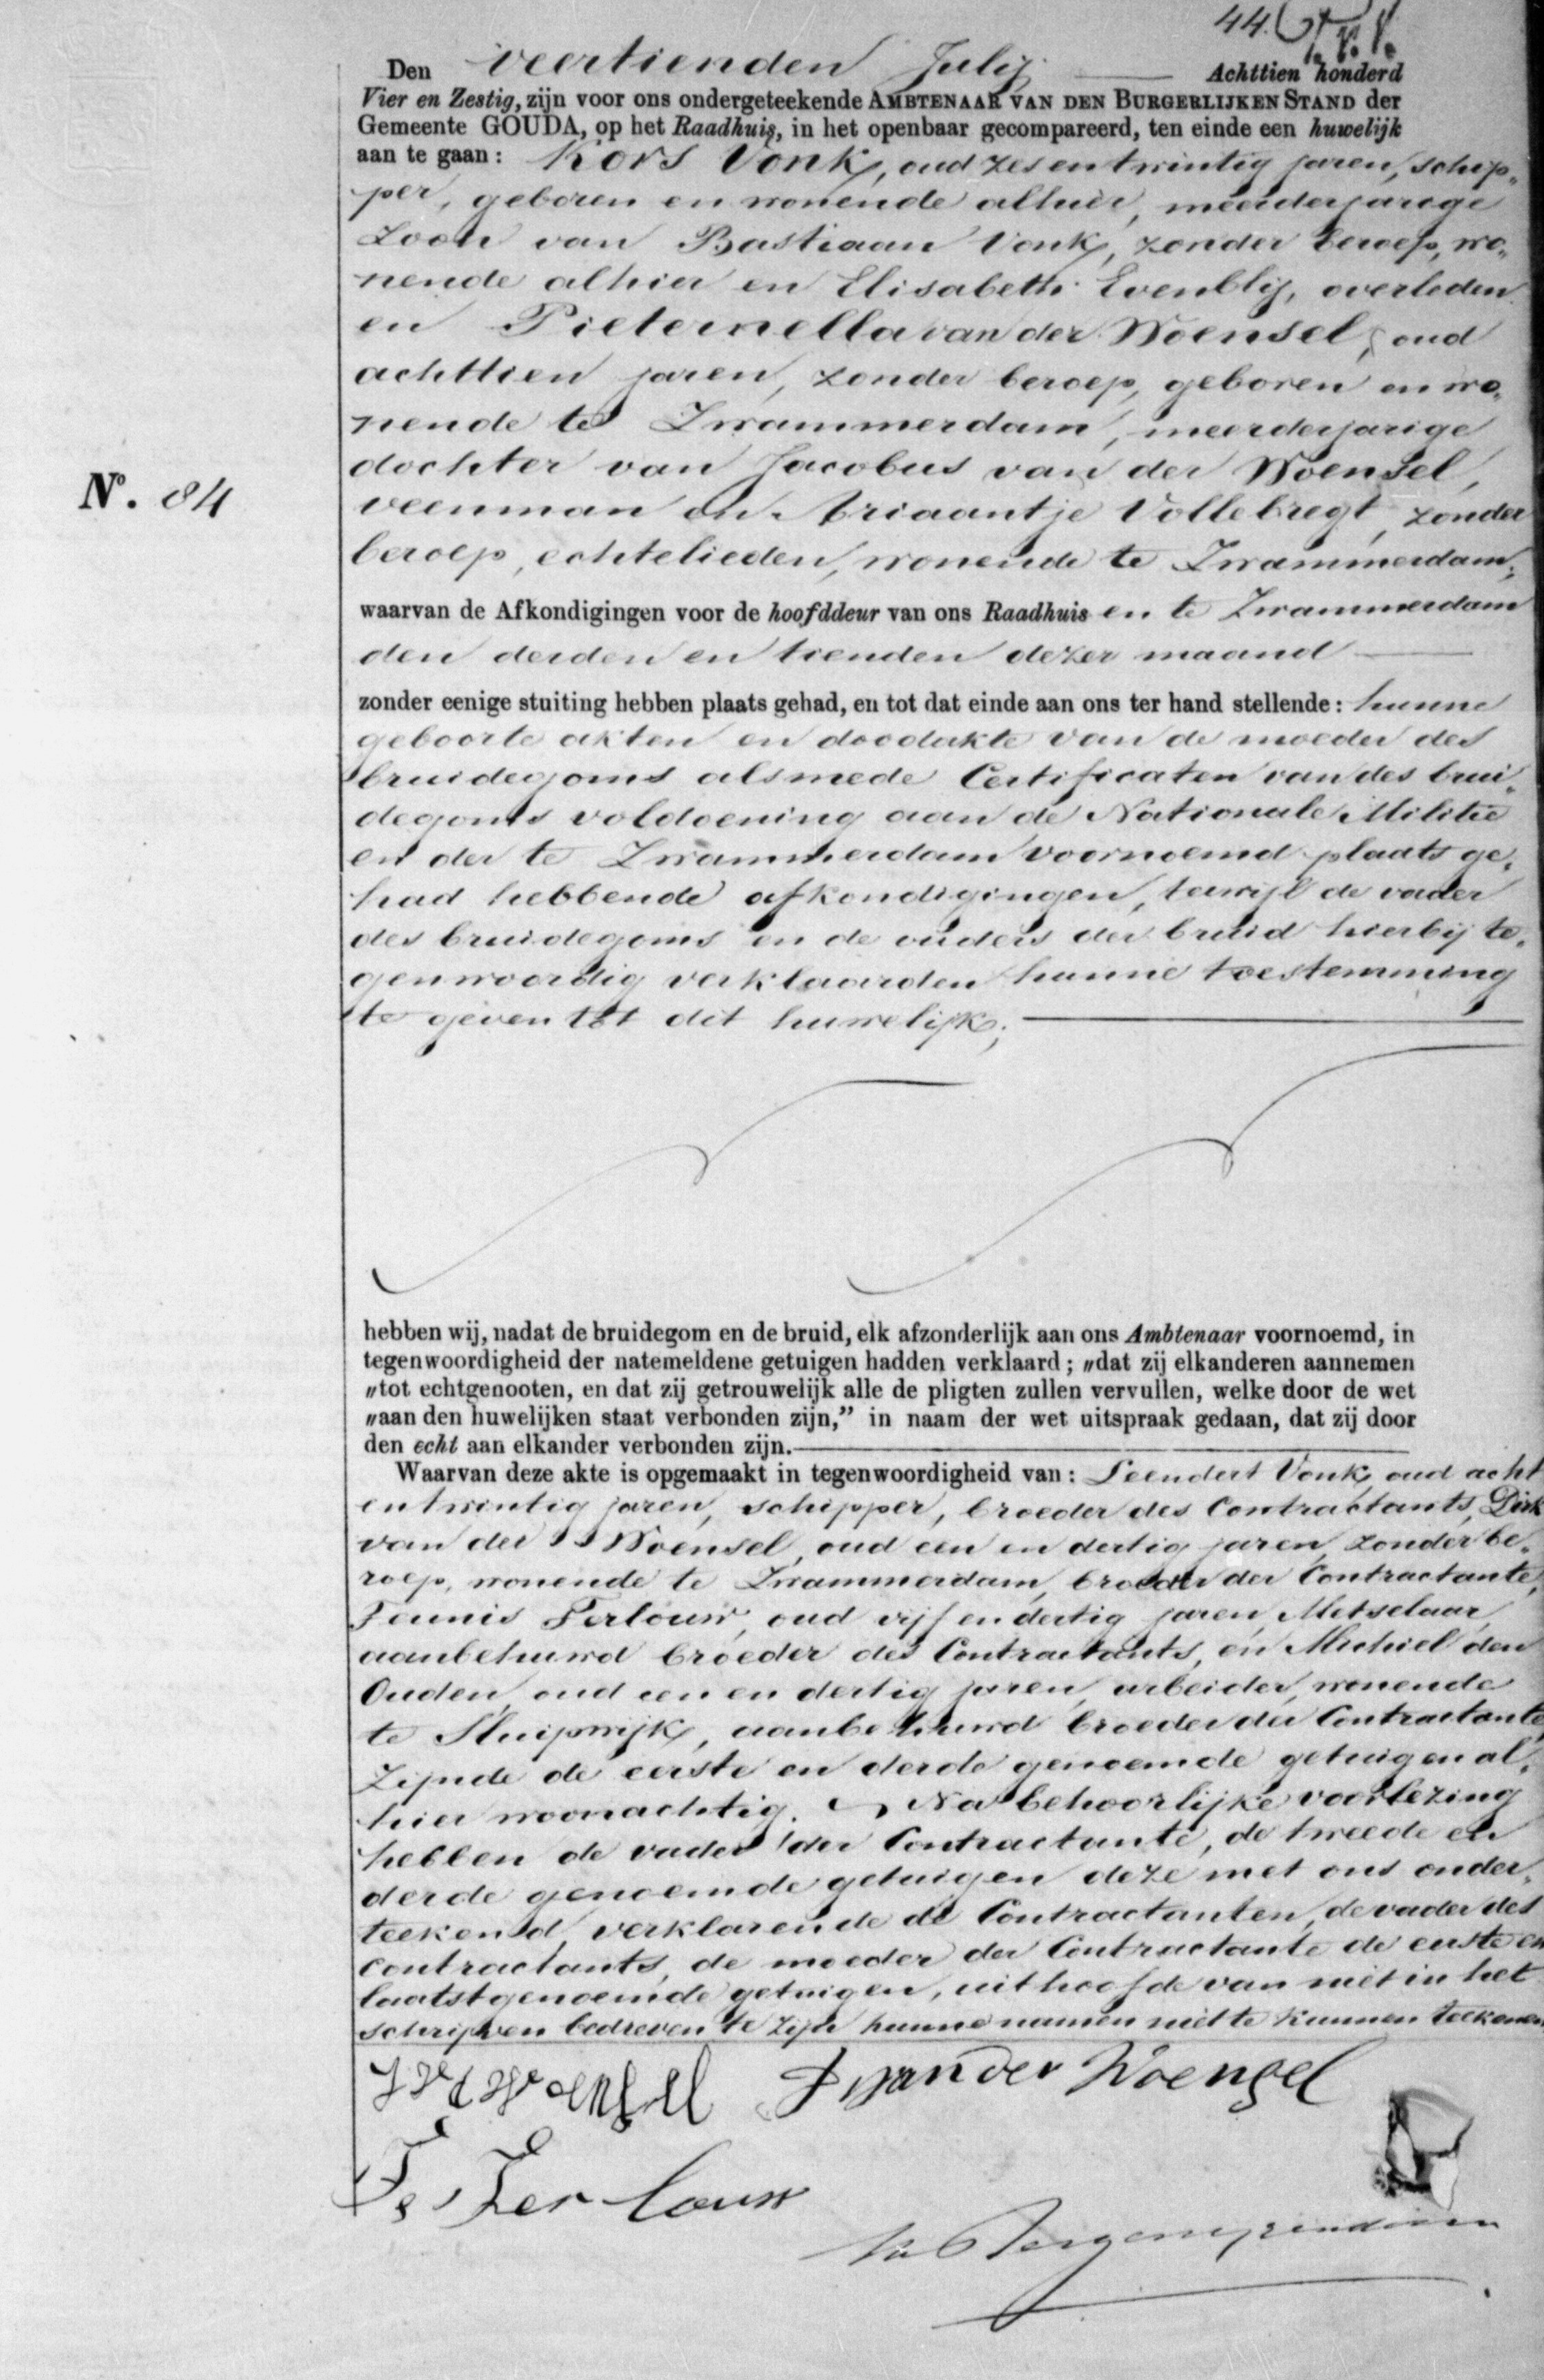 44.
Den veertienden Julij Achttien honderd
Vier en Zestig, zijn voor ons ondergeteekende AMBTENAAR VAN DEN BURGERLIJKEN STAND der
Gemeente GOUDA, op het Raadhuis, in het openbaar gecompareerd, ten einde een huwelijk
aan te gaan: Kors Vonk, oud zes en twintig jaren, schip„
per, geboren en wonende alhier, meerderjarige
Zoon van Bastiaan Vonk, zonder beroep, wo„
nende alhier en Elisabeth Evenblij, overleden
en Pieternella van der Woensel, oud
achttien jaren, zonder beroep, geboren en wo„
nende te Zwammerdam, meerderjarige
dochter van Jacobus van der Woensel,
N°. 84
veenman en Ariaantje Vollebregt, zonder
beroep, echtelieden, wonende te Zwammerdam;
waarvan de Afkondigingen voor de hoofddeur van ons Raadhuis en te Zwammerdam
den derden en tienden dezer maand
zonder eenige stuiting hebben plaats gehad, en tot dat einde aan ons ter hand stellende: hunne
geboorte akten en doodakte van de moeder des
bruidegoms alsmede Certificaten van des brui„
degoms voldoening aan de Nationale Militie
en der te Zwammerdam voornoemd plaats ge„
had hebbende afkondigingen, terwijl de vader
des bruidegoms en de ouders der bruid hierbij te„
genwoordig verklaarden hunne toestemming
te geven tot dit huwelijk;
hebben wij, nadat de bruidegom en de bruid, elk afzonderlijk aan ons Ambtenaar voornoemd, in
tegenwoordigheid der natemeldene getuigen hadden verklaard; „dat zij elkanderen aannemen
„tot echtgenooten, en dat zij getrouwelijk alle de pligten zullen vervullen, welke door de wet
„aan den huwelijken staat verbonden zijn,” in naam der wet uitspraak gedaan, dat zij door
den echt aan elkander verbonden zijn.
Waarvan deze akte is opgemaakt in tegenwoordigheid van: Leendert Vonk, oud acht
en twintig jaren, schipper, broeder des Contractants, Dirk
van der Woensel, oud een en dertig jaren, zonder be„
roep, wonende te Zwammerdam, broeder der Contractante,
Teunis Terlouw, oud vijf en dertig jaren, Metselaar,
aanbehuwd broeder des Contractants, en Michiel den
Ouden, oud een en dertig jaren, arbeider, wonende
te Sluipwijk, aanbehuwd broeder der Contractante,
Zijnde de eerste en derde genoemde getuigen al„
hier woonachtig. Na behoorlijke voorlezing
hebben de vader der Contractante, de tweede en
derde genoemde getuigen deze met ons onder„
teekend, verklarende de Contractanten, de vader des
contractants, de moeder der Contractante de eerste en
laatstgenoemde getuigen, uithoofde van niet in het
schrijven bedreven te zijn hunne namen niet te kunnen teekenen
J V d Woensel D van der Woensel
T. Ter louw